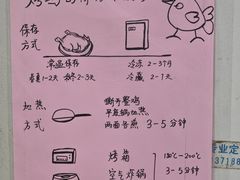 保存
方式
常温保存
冷冻 2-3个月
春夏1-2天 秋冬2-3天
冷藏 1-7天
加热
方式
撕开整鸡
平底锅加热
两面各煎 3-5分钟
烤箱
180℃-200℃
空气炸锅
3-5分钟
专业定
37188